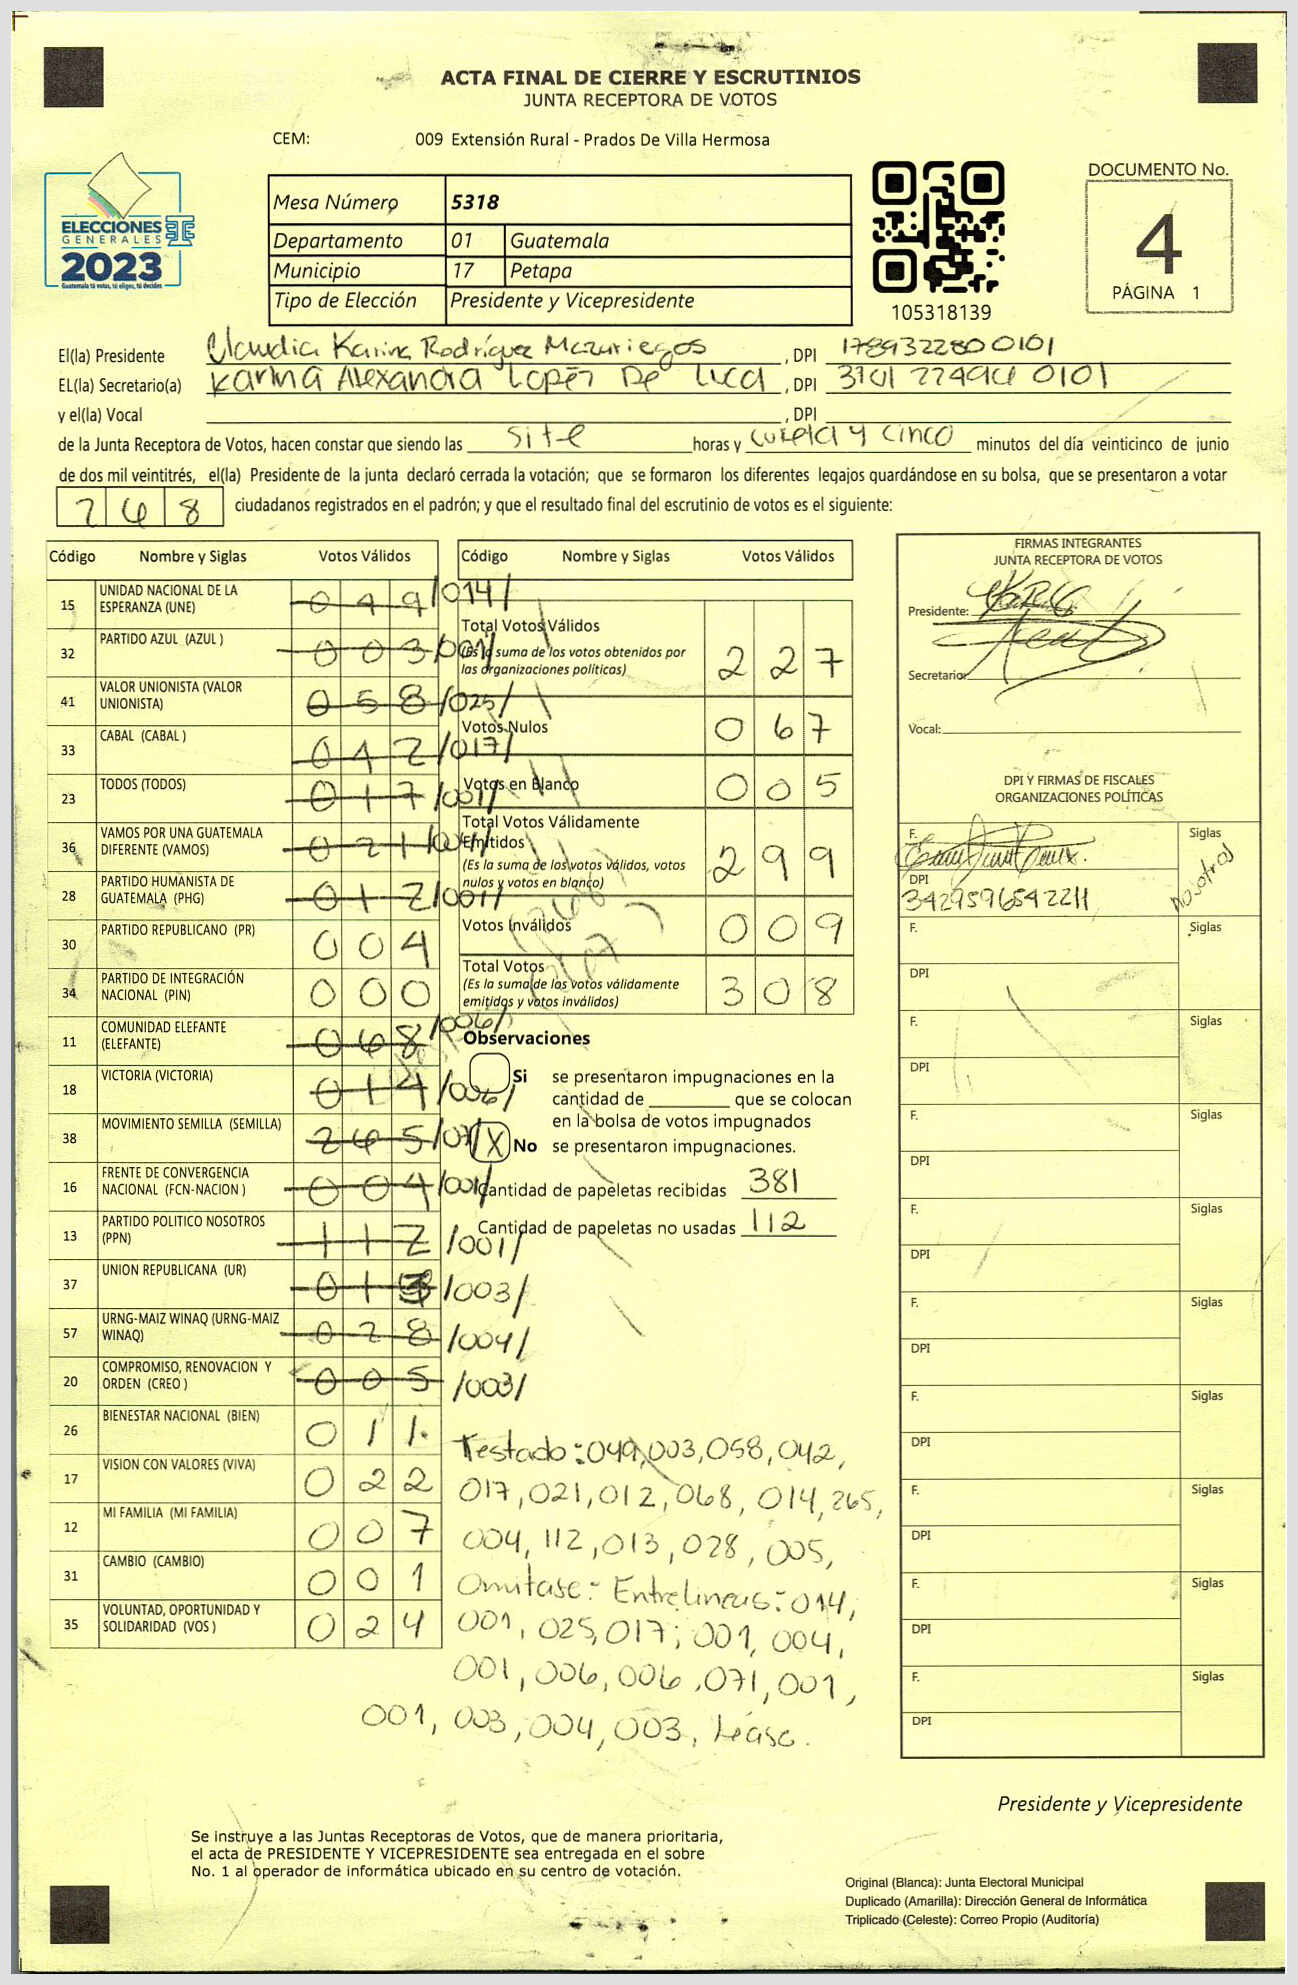 ACTA FINAL DE CIERRE Y ESCRUTINIOS
JUNTA RECEPTORA DE VOTOS
CEM: 009 Extensión Rural - Prados De Villa Hermosa
ELECCIONES
GENERALES
2023
Guatemala tú votas, tú eliges, tú decides
Mesa Número 5318
Departamento 01 Guatemala
Municipio 17 Petapa
Tipo de Elección Presidente y Vicepresidente
105318139
DOCUMENTO No.
4
PÁGINA 1
El(la) Presidente Claudia Karina Rodríguez Mazariegos, DPI 1789322800101
EL(la) Secretario(a) Karina Alexandra Lopéz De Luca, DPI
y el(la) Vocal , DPI
de la Junta Receptora de Votos, hacen constar que siendo las site horas y y cinco minutos del día veinticinco de junio
de dos mil veintitrés, el(la) Presidente de la junta declaró cerrada la votación; que se formaron los diferentes legajos guardándose en su bolsa, que se presentaron a votar
268 ciudadanos registrados en el padrón; y que el resultado final del escrutinio de votos es el siguiente:
Código Nombre y Siglas Votos Válidos
15 UNIDAD NACIONAL DE LA ESPERANZA (UNE) 049 /014/
32 PARTIDO AZUL (AZUL ) 003 /001/
41 VALOR UNIONISTA (VALOR UNIONISTA) 058 /025/
33 CABAL (CABAL ) 042 /017/
23 TODOS (TODOS) 017 /001/
36 VAMOS POR UNA GUATEMALA DIFERENTE (VAMOS) 021 /004/
28 PARTIDO HUMANISTA DE GUATEMALA (PHG) 012 /001/
30 PARTIDO REPUBLICANO (PR) 004
34 PARTIDO DE INTEGRACIÓN NACIONAL (PIN) 000
11 COMUNIDAD ELEFANTE (ELEFANTE) 068 /006/
18 VICTORIA (VICTORIA) 014 /006/
38 MOVIMIENTO SEMILLA (SEMILLA) 265 /071/
16 FRENTE DE CONVERGENCIA NACIONAL (FCN-NACION ) 004 /001/
13 PARTIDO POLITICO NOSOTROS (PPN) 112 /001/
37 UNION REPUBLICANA (UR) 013 /003/
57 URNG-MAIZ WINAQ (URNG-MAIZ WINAQ) 028 /004/
20 COMPROMISO, RENOVACION Y ORDEN (CREO ) 005 /003/
26 BIENESTAR NACIONAL (BIEN) 011
17 VISION CON VALORES (VIVA) 022
12 MI FAMILIA (MI FAMILIA) 007
31 CAMBIO (CAMBIO) 001
35 VOLUNTAD, OPORTUNIDAD Y SOLIDARIDAD (VOS ) 024
Código Nombre y Siglas Votos Válidos
Total Votos Válidos 227
(Es la suma de los votos obtenidos por
las organizaciones politicas)
Votos Nulos 067
Votos en Blanco 005
Total Votos Válidamente
Emitidos 299
(Es la suma de los votos válidos, votos
nulos y votos en blanco)
Votos Inválidos 009
Total Votos 308
(Es la suma de los votos válidamente
emitidos y votos inválidos)
Observaciones
Si se presentaron impugnaciones en la
cantidad de que se colocan
en la bolsa de votos impugnados
X No se presentaron impugnaciones.
Cantidad de papeletas recibidas 381
Cantidad de papeletas no usadas 112
Testado: 049, 003, 058, 042,
017, 021, 012, 068, 014, 265,
004, 112, 013, 028, 005,
Omitase: Entrelineas: 014,
001, 025, 017; 001, 004,
001, 006, 006, 071, 001,
001, 003, 004, 003, Léase.
FIRMAS INTEGRANTES
JUNTA RECEPTORA DE VOTOS
Presidente:
Secretario:
Vocal:
DPI Y FIRMAS DE FISCALES
ORGANIZACIONES POLÍTICAS
F. Siglas nosotros
DPI 3429596542211
F. Siglas
DPI
F. Siglas
DPI
F. Siglas
DPI
F. Siglas
DPI
F. Siglas
DPI
F. Siglas
DPI
F. Siglas
DPI
F. Siglas
DPI
F. Siglas
DPI
Presidente y Vicepresidente
Se instruye a las Juntas Receptoras de Votos, que de manera prioritaria,
el acta de PRESIDENTE Y VICEPRESIDENTE sea entregada en el sobre
No. 1 al operador de informática ubicado en su centro de votación.
Original (Blanca): Junta Electoral Municipal
Duplicado (Amarilla): Dirección General de Informática
Triplicado (Celeste): Correo Propio (Auditoría)